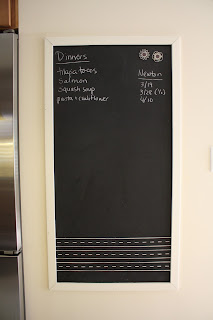 Dinners
tilapia tacos
Salmon
squash soup
pasta + cauliflower
Newton
3/19
3/28 (½)
4/10